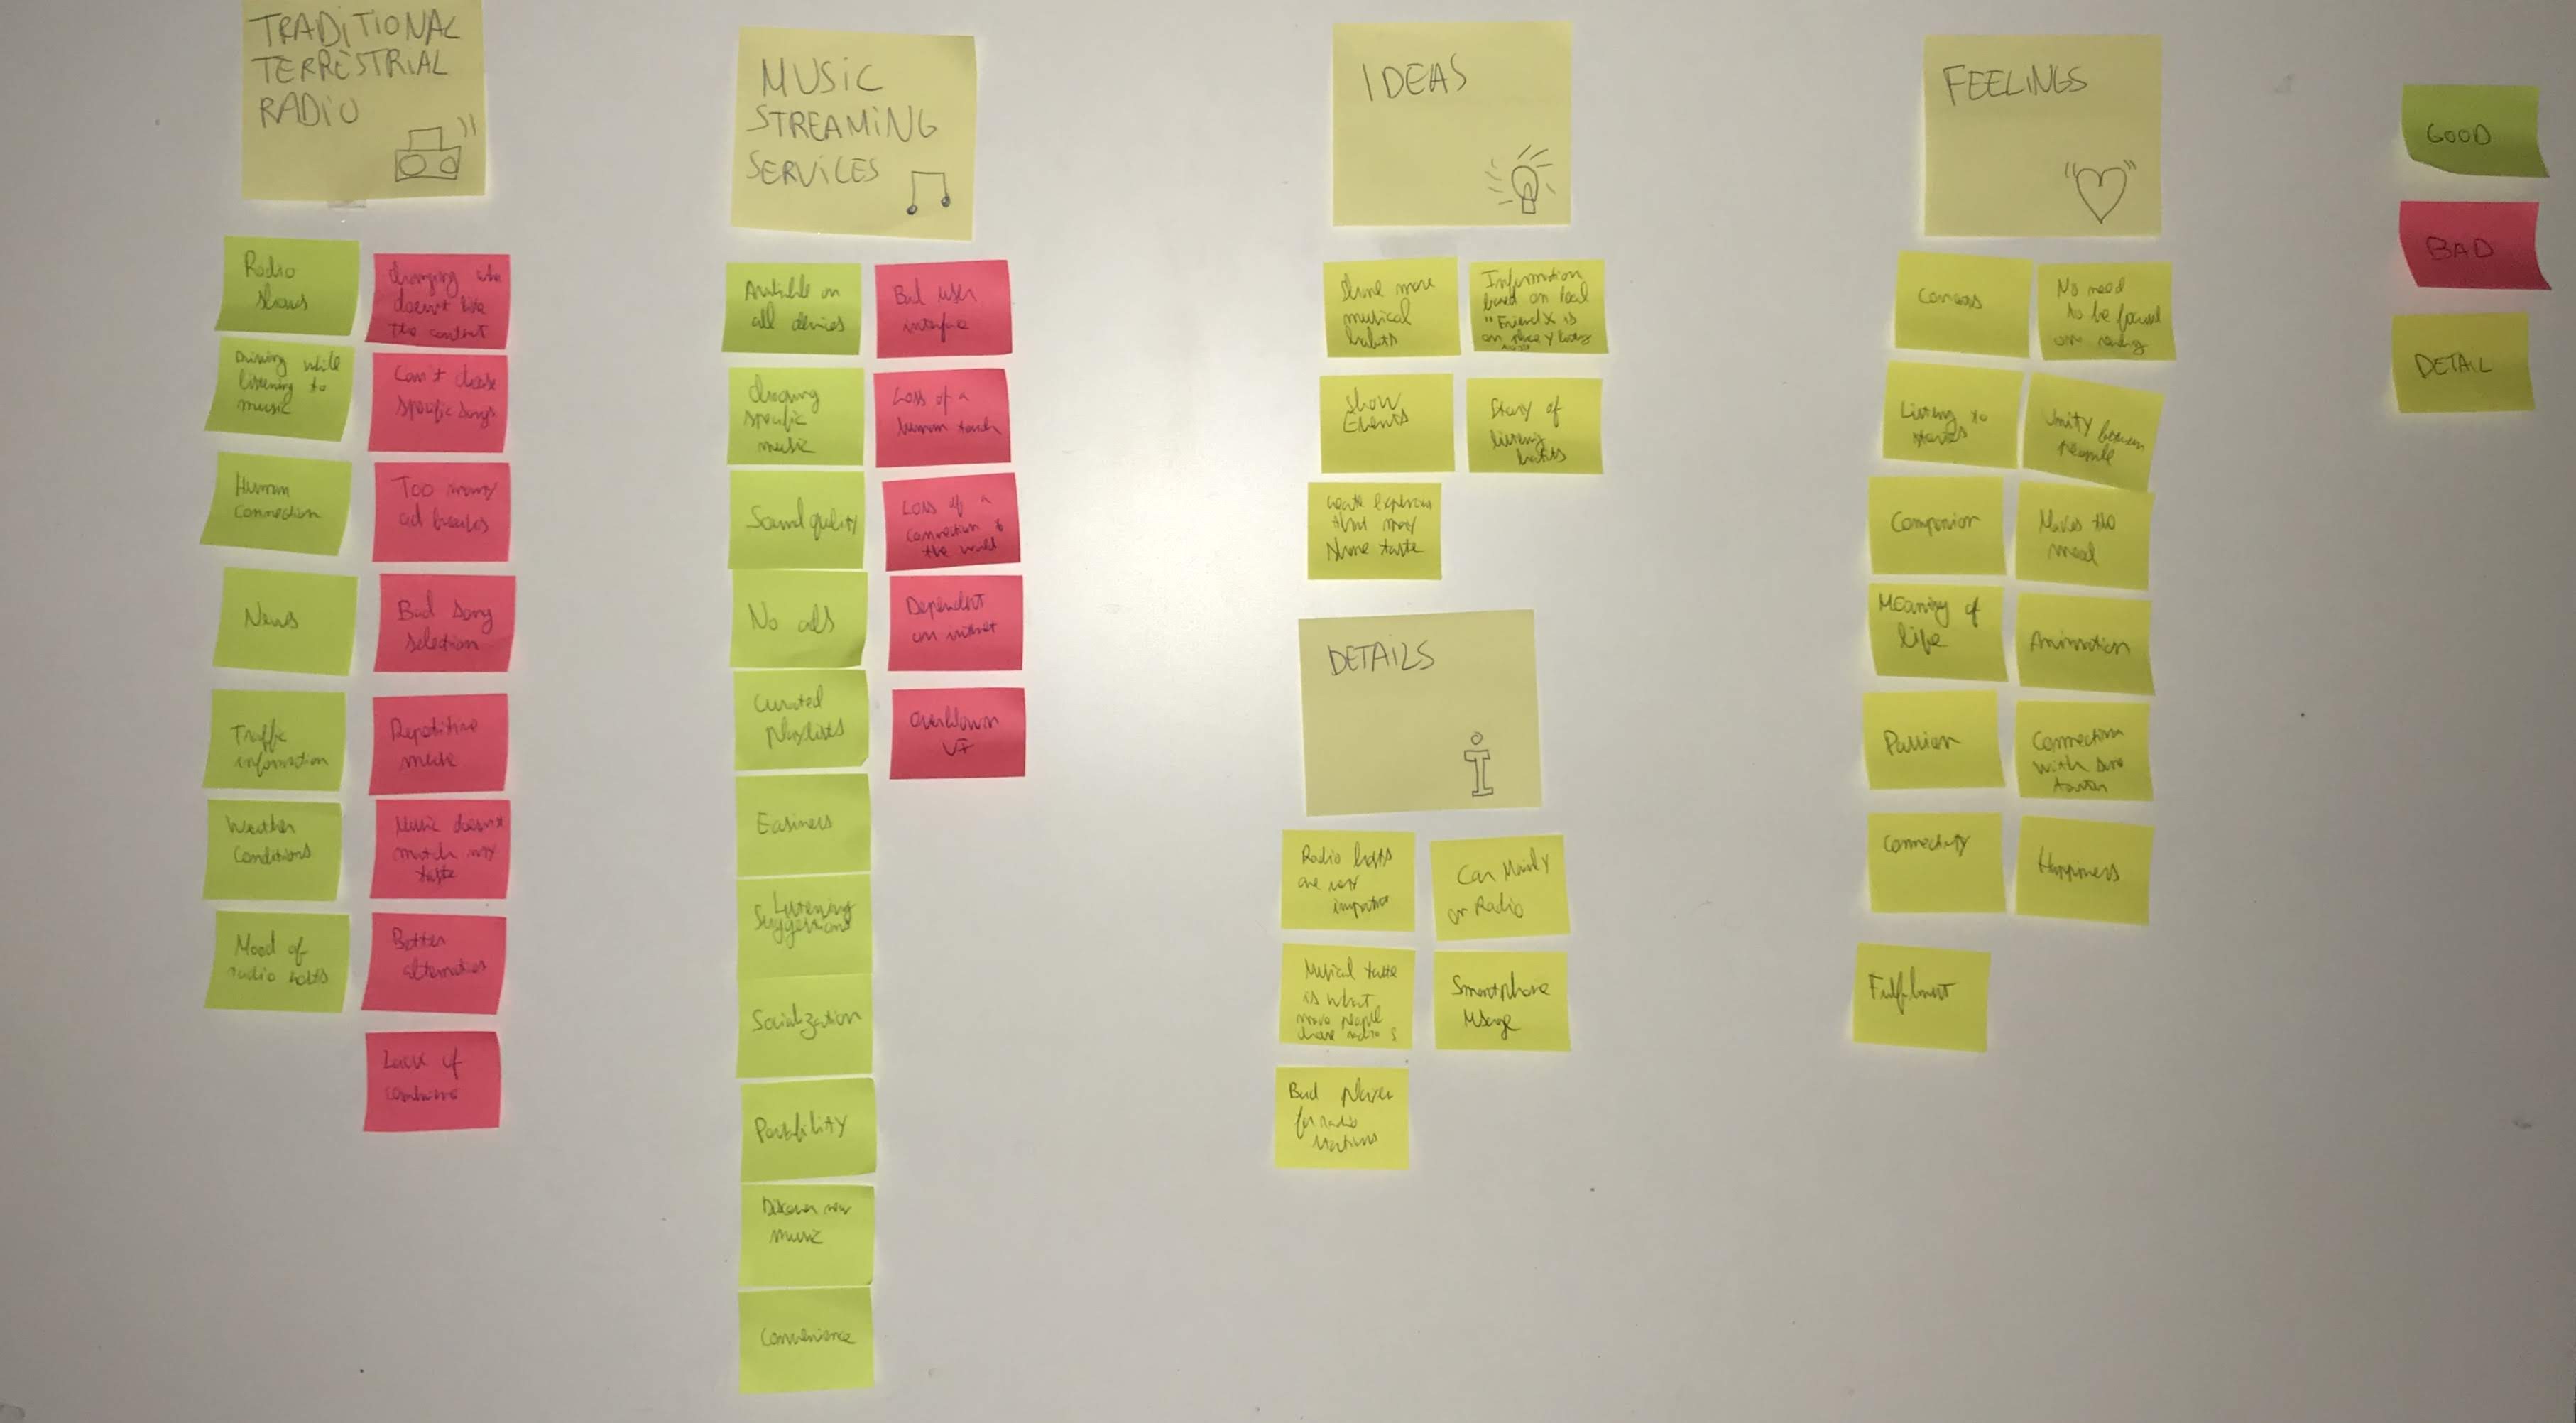 TRADITIONAL
TERRESTRIAL
RADIO
Radio
shows
Driving while
listening to
music
Human
Connection
News
Traffic
information
Weather
Conditions
Mood of
radio hosts
changing who
doesn't like
the content
Can't choose
specific songs
Too many
ad breaks
Bad song
selection
Repetitive
music
Music doesn't
match my
taste
Better
alternatives
Lack of
MUSIC
STREAMING
SERVICES
Available on
all devices
choosing
specific
music
Sound quality
No ads
Curated
playlists
Easiness
Listening
Suggestions
Socialization
Portability
Discover new
music
Convenience
Bad user
interface
Loss of a
human touch
Loss of a
connection to
the world
Dependent
on internet
Overblown
UI
IDEAS
Share more
musical
habits
Information
based on local
"Friend X is
on place Y
Show
Events
Diary of
listening
habits
Create experiences
that may
share taste
DETAILS
Radio hosts
are very
important
Car Mainly
or Radio
Musical taste
is what
make people
choose radio s
Smartphone
Usage
Bad Player
for radio
stations
FEELINGS
No need
to be focused
on
Listening to
stories
Unity between
people
Companion
Makes the
mood
Meaning of
life
Animation
Passion
Connection
with same
tastes
Connectivity
Happiness
Fulfilment
GOOD
BAD
DETAIL